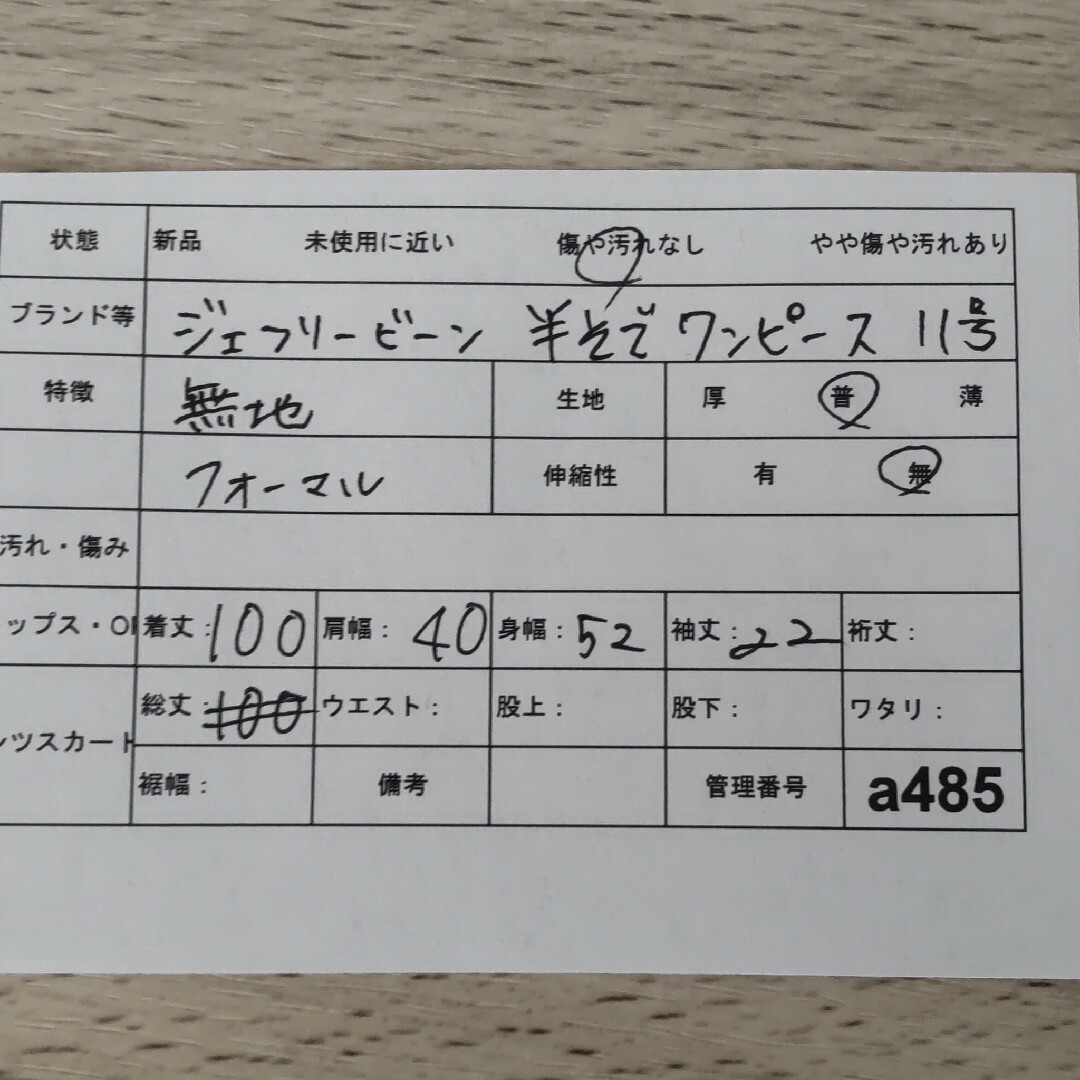 状態 新品 未使用に近い 傷や汚れなし やや傷や汚れあり
ブランド等 ジェフリービーン 半そでワンピース 11号
特徴 無地 生地 厚 普 薄
フォーマル 伸縮性 有 無
汚れ・傷み
ップス・OP 着丈:100 肩幅:40 身幅:52 袖丈:22 裄丈:
総丈:100 ウエスト: 股上: 股下: ワタリ:
ンツスカート
裾幅: 備考 管理番号 a485